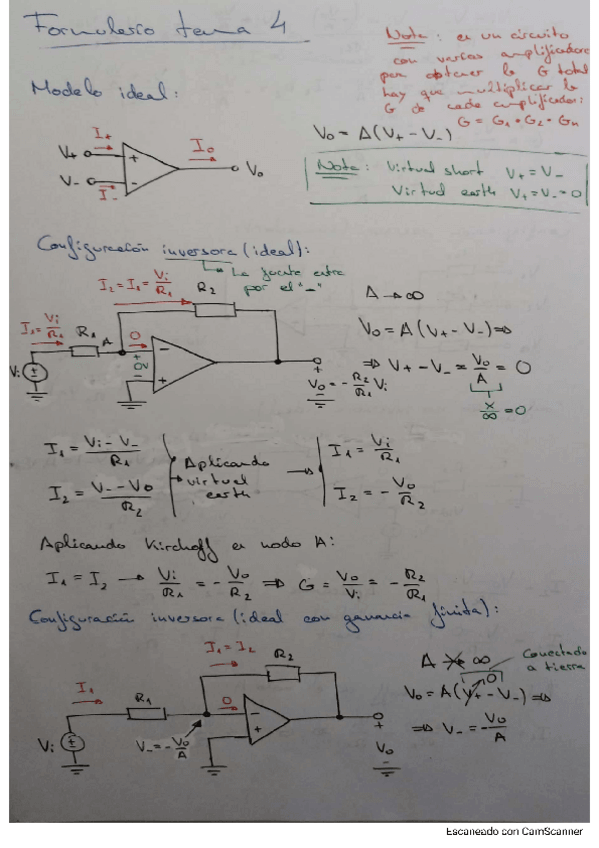 Formulario tema 4
Nota: en un circuito
con varios amplificadores
para obtener la G total
hay que multiplicar la
G de cada amplificador:
G = G₁ · G₂ · Gₙ
Modelo ideal:
V₀ = A(V₊ - V₋)
I₊
V₊
I₀
V₀
V₋
I₋
Nota: Virtual short V₊ = V₋
Virtual earth V₊ = V₋ = 0
Configuración inversora (ideal):
La fuente entra
por el "-"
I₂ = I₁ = Vi/R₁
R₂
I₁ = Vi/R₁
R₁
A
0
0V
Vi
V₀ = -R₂/R₁ Vi
A → ∞
V₀ = A(V₊ - V₋) ⇒
⇒ V₊ - V₋ = V₀/A = 0
x/∞ = 0
I₁ = (Vi - V₋)/R₁
I₂ = (V₋ - V₀)/R₂
Aplicando
virtual
earth
I₁ = Vi/R₁
I₂ = -V₀/R₂
Aplicando Kirchoff en nodo A:
I₁ = I₂ → Vi/R₁ = -V₀/R₂ ⇒ G = V₀/Vi = -R₂/R₁
Configuración inversora (ideal con ganancia finita):
I₁ = I₂
R₂
I₁
R₁
0
Vi
V₋ = -V₀/A
V₀
A ↛ ∞
Conectado
a tierra
0
V₀ = A(V₊ - V₋) ⇒
⇒ V₋ = -V₀/A
Escaneado con CamScanner